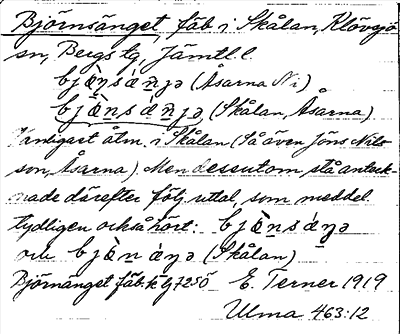 Björnsänget, fäb. i Skålan, Klövsjö
sn, Bergs tg, Jämtl. l.
bjœ̀ṇsáṇjə (Åsarna Ni)
bjœ̀ṇsáṇjə (Skålan, Åsarna)
Vanligast åtm. i Skålan (Så även Jöns Nils-
son, Åsarna). Men dessutom stå anteck-
nade därefter följ. uttal, som meddel.
tydligen också hört: bjœ̀ṇsáŋə
och bjœ̀ṇáŋə (Skålan)
Björnänget fäb. k. lg 7250 E. Terner 1919
Ulma 463:12